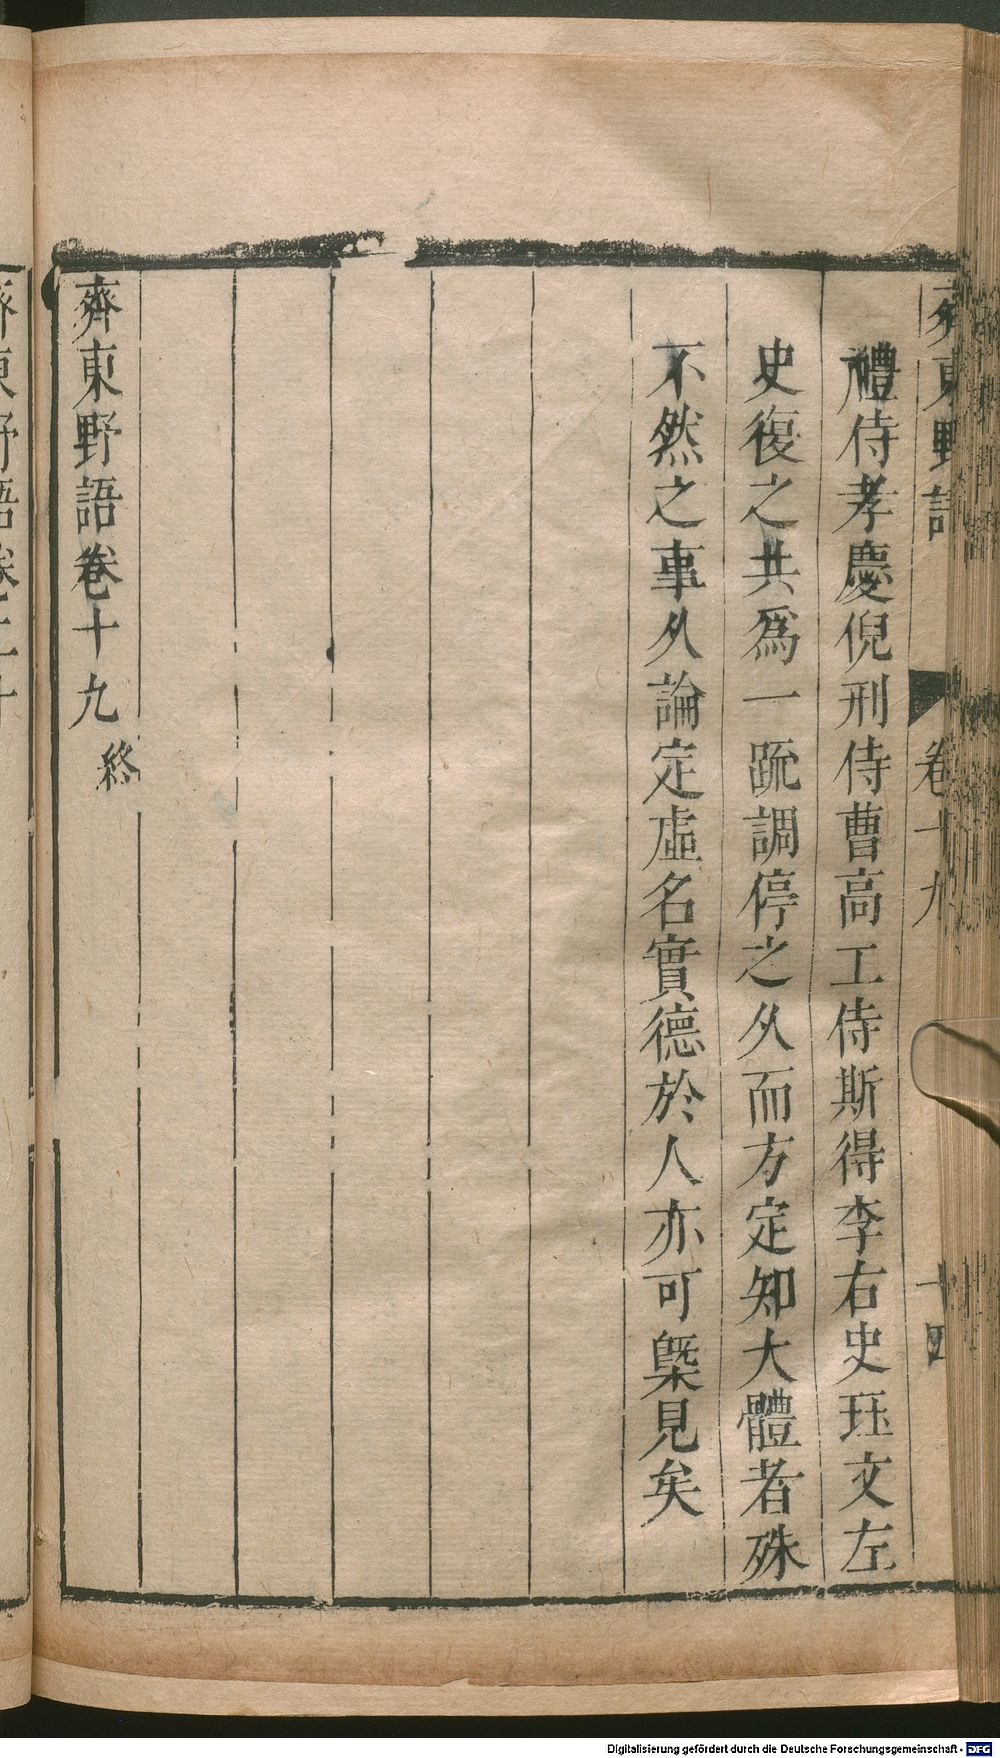 齊東野語 卷十九 十四
禮侍孝慶倪刑侍曹高工侍斯得李右史珏文左
史復之共爲一䟽調停之久而方定知大體者殊
不然之事久論定虛名實德於人亦可槩見矣
齊東野語卷十九終
齊東野語卷二十
Digitalisierung gefördert durch die Deutsche Forschungsgemeinschaft - DFG